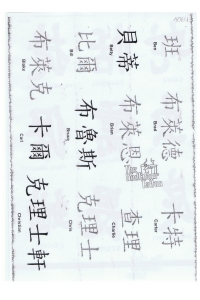 班
Ben
布來德
Brad
卡特
Carter
貝蒂
Betty
布萊恩
Brian
查理
Charlie
比爾
Bill
布魯斯
Bruce
克理士
Chris
布萊克
Blake
卡爾
Carl
克理士軒
Christian